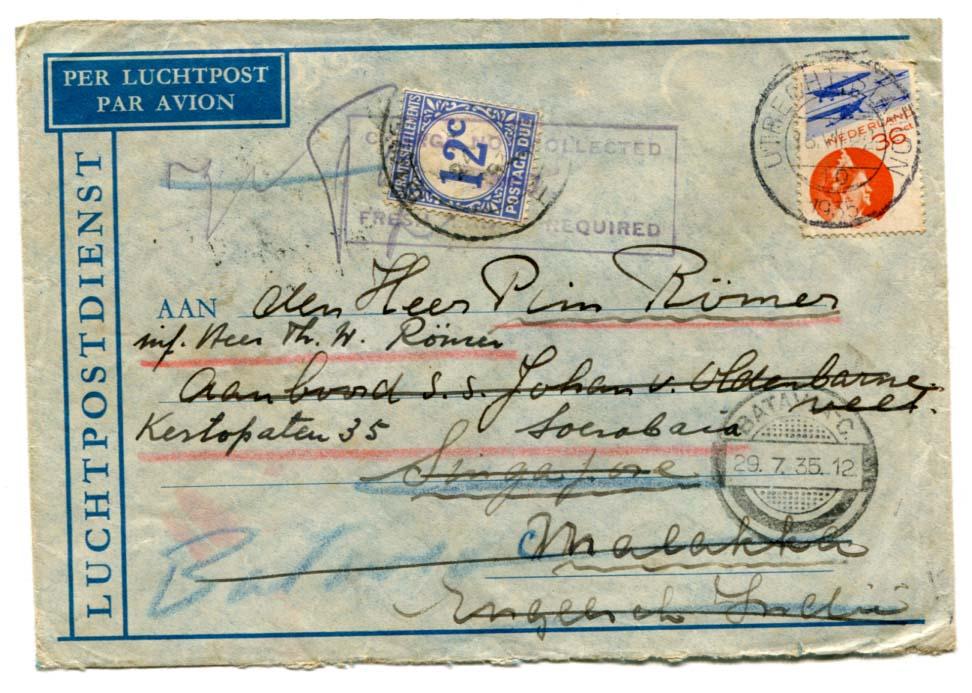 PER LUCHTPOST
PAR AVION
LUCHTPOSTDIENST
SETTLEMENTS
12c
POSTAGE DUE
COLLECTED
REQUIRED
UTRECHT
NEDERLAND
36
1935
AAN den Heer Pim Römer
inf. Heer Th. W. Römer
Aan boord s.s. Johan v. Oldenbarne-
velt.
Kertopaten 35 Soerabaia
Singapore
BATAVIA-C.
29.7.35.12
Malakka
Engelsch Indië